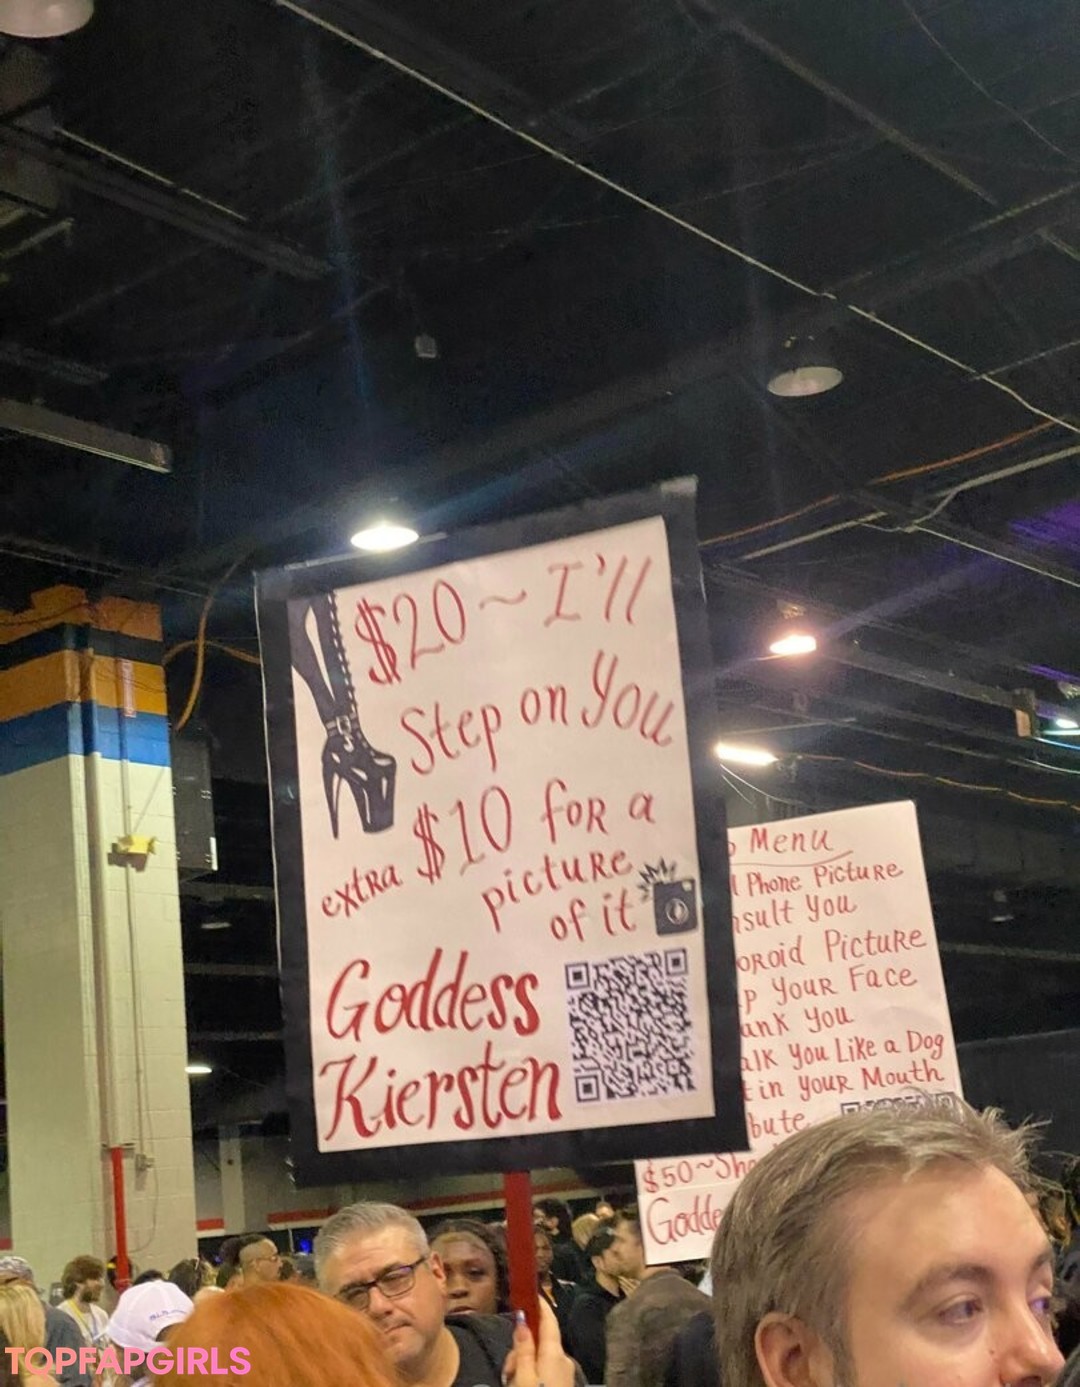 $20 ~ I'll
Step on You
extra $10 for a
picture
of it
Goddess
Kiersten
Menu
Phone Picture
You
Picture
Your Face
You
You Like a Dog
in Your Mouth
$50~
TOPFAPGIRLS